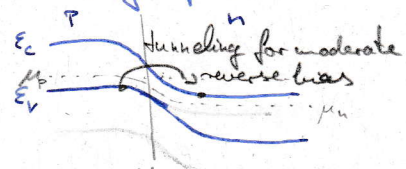 P n
εc tunneling for moderate
μp reverse bias
εv μn